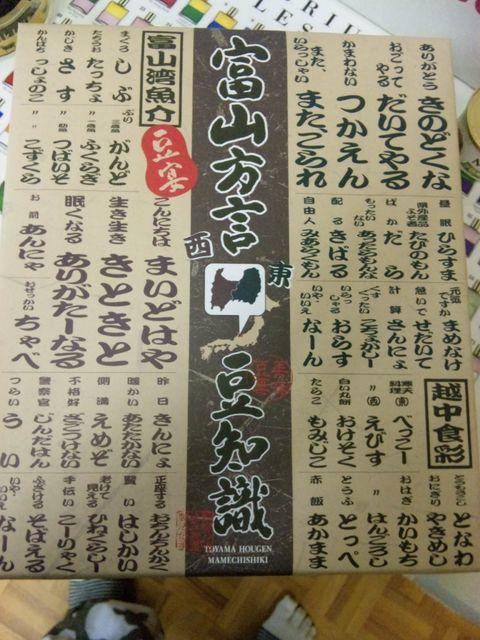 富山方言
豆知識
西
東
TOYAMA HOUGEN
MAMECHISHIKI
ありがとう きのどくな
おごってやる だいてやる
かまわない つかえん
また、いらっしゃい また、ごられ
昼眠 ひらすま
県外産品 よそ者 たびのもん
ばか だら
もったいない あったらもんな
配る きばる
自由人 みあらくもん
元気ですか まめなけ
急いで せだいて
計算 さんにょ
いらっしゃる おらす
いや いいえ なーん
越中食彩
寒天料理(東) べっこー
〃(西) えびす
白い丸餅 おけそく
たらこ もみじこ
とろろこんぶ となわ
おにぎり やきめし
おはぎ かいもち
〃 はんごろし
とうふ とっぺ
赤飯 あかまま
富山湾魚介
豆宴
まぐろ しび
たちうお たっちょ
かじき さす
かんぱち っしょのこ
ぶり 三歳魚 がんど
〃 一歳魚 ふくらぎ
〃 幼魚 つばいそ
〃 〃 こずくら
こんにちは まいどはや
生き生き きときと
眠くなる ありがたーなる
お前 あんにゃ
おせっかい ちゃべ
昨日 きんにょ
暖かい あたたかない
側溝 えめぞ
不格好 ざまつけない
警察官 じんだはん
つらい うい
正座する おちんちんかく
賢い はしかい
老けて見える ひねくらしー
手伝い こーりゃく
ふざける そばえる
いや いいえ なーん